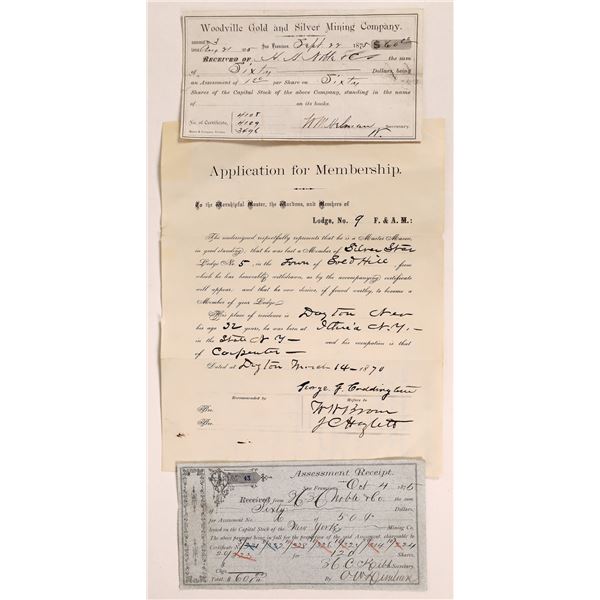 Woodville Gold and Silver Mining Company.
3
Aug 21 San Francisco, Sept. 22 1875 $60 00
RECEIVED OF H H Noble & Co the sum
of Sixty Dollars, being
an Assessment of 1 00 per Share on Sixty
Shares of the Capital Stock of the above Company, standing in the name
of on its books.
No. of Certificate, 4108
4129
3496
Secretary.
Application for Membership.
To the Worshipful Master, the Wardens, and Members of
Lodge, No. 9 F. & A. M.:
The undersigned respectfully represents that he is a Master Mason,
in good standing; that he was last a Member of Silver Star
Lodge No. 5, in the Town of Gold Hill, from
which he has honorably withdrawn, as by the accompanying certificate
will appear; and that he now desires, if found worthy, to become a
Member of your Lodge.
His place of residence is Dayton Nev
his age 32 years, he was born at Ithica N.Y.
in the State N Y and his occupation is that
of Carpenter
Dated at Dayton March 14 1870
George J Coddington
Recommended by Refers to
Bro. W W Brown
Bro. J C Hazlett
Assessment Receipt.
43
San Francisco Oct 4 1875
Received from H H Noble & Co the sum
of Sixty Dollars,
per Assessment No. 6 of 50 ¢
levied on the Capital Stock of the New York Mining Co.
The above payment being in full for the proportion of the said Assessment, chargeable to
Certificate No.
120 Shares
Chgs.
Total $60 00
H C Kibbe Secretary
By